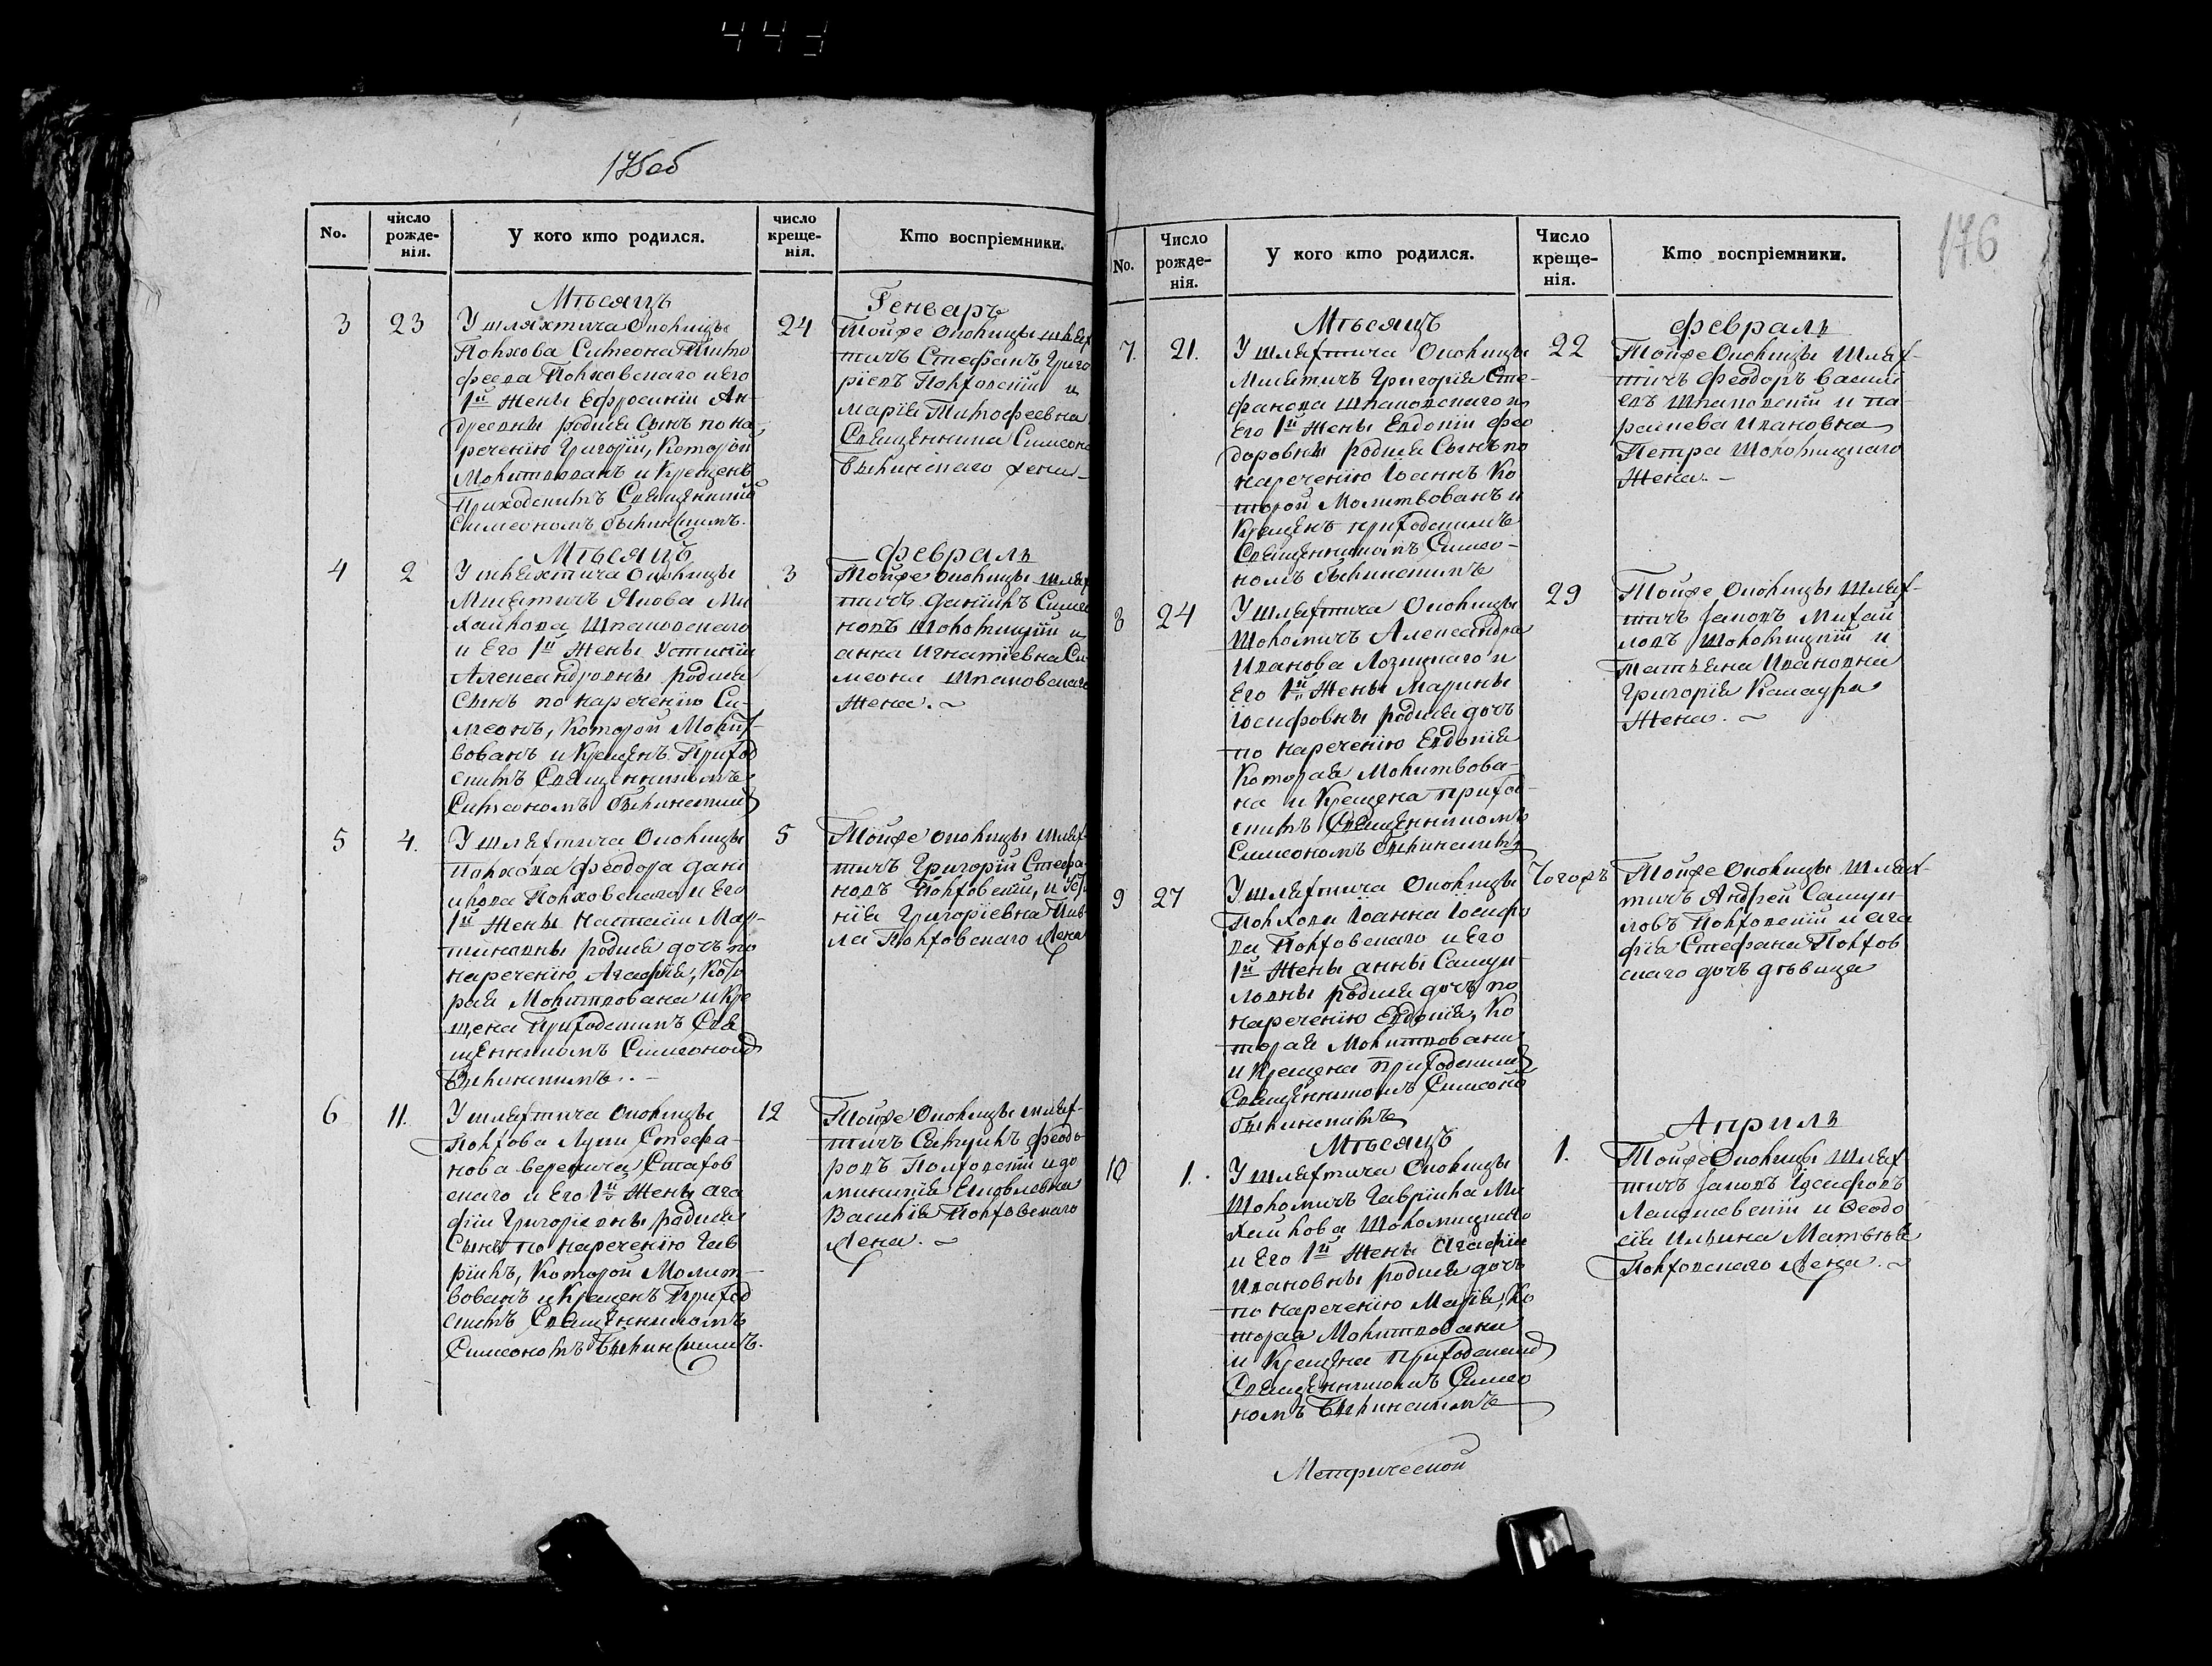 443
175об
No.
число рожде-нія.
У кого кто родился.
число креще-нія.
Кто воспріемники.
Мѣсяцъ
Генваръ
3
23
У шляхтича Околицы
Полхова Симеона Тимо
феева Полховскаго и Его
1й Жены Ефросиніи Ан-
дреевны родися Сынъ по на-
реченію Григорій, Которой
Молитвованъ и Крещенъ
Приходскимъ Священикой
Симеономъ Былинскимъ.
24
Тойже Околицы шлях
тичъ Стефанъ Григо
ріевъ Полховскій и
Марія Тимофеевна
Священника Симеона
Былинскаго жена
Мѣсяцъ
февраль
4
2
У шляхтича Околицы
Якова Ми
хайлова Шпаковскаго
и Его 1й Жены Устиніи
Александровны родися
Сынъ по нареченію Си-
меонъ, Которой Молит-
вованъ и Крещенъ Приход
скимъ Священникомъ
Симеономъ Былинский
3
Тойже Околицы шлях
тичъ Даніилъ Симео
новъ Шоломицкій и
анна Игнатіевна Си
меона Шпаковскаго
Жена.
5
4.
У шляхтича Околицы
Полхова Феодора Дани
илова Полховскаго и Его
1й Жены Наталіи Мар-
тиновны родися дочъ по
нареченію Агафія, Кото
рая Молитвована и Кре
щена Приходскимъ Свя
щенникомъ Симеоном
Былинскимъ.
5
Тойже Околицы шлях-
тичъ Григорій Стефа-
новъ Полховскій, и
Григоріевна
Полховскаго жена
6
11.
У шляхтича Околицы
Полхова Луки Стефа-
нова Стахов
скаго и Его 1й Жены ага
фіи Григоріевны родися
Сынъ по нареченію Гав
ріилъ, Которой Молит-
вованъ и Крещенъ Приход
скимъ Священникомъ
Симеономъ Былинскимъ.
12
Тойже Околицы шлях-
тичъ Феодо
ровъ Полховскій и до
миникія Яковлевна
Василія Полховскаго
Жена.
176
No.
Число рожде-нія.
У кого кто родился.
Число креще-нія.
Кто воспріемники.
Мѣсяцъ
февраль
7.
21.
У шляхтича Околицы
Григорія Сте-
фанова Шпаковскаго и
Его 1й Жены Евдокіи Фео
доровны родися Сынъ по
нареченію Іоаннъ Ко
торой Молитвованъ и
Крещенъ приходскимъ
Священникомъ Симео-
номъ Былинскимъ
22
Тойже Околицы Шлях-
тичъ Феодоръ Васили
евъ Шпаковскій и па
раскева Ивановна
Петра Шоломицкаго
Жена.
8
24
У шляхтича Околицы
Шоломичъ Александра
Иванова Лозицкаго и
Его 1й Жены Марины
Іосифовны родися дочъ
по нареченію Евдокія
Которая Молитвова-
на и Крещена приход-
скимъ Священникомъ
Симеономъ Былинскимъ
29
Тойже Околицы Шлях-
тичъ Яковъ Михай
ловъ Шоломицкій и
Татьяна Ивановна
Григорія
Жена.
9
27
У шляхтича Околицы
Полхова Іоанна Іосифо
ва Полховскаго и Его
1й Жены анны Самуи-
ловны родися дочъ по
нареченію Евдокія, Ко
торая Молитвована
и Крещена приходский
Священникомъ Симеоно
Былинскимъ
Тогоже
Тойже Околицы Шлях-
тичъ Андрей Самуи-
ловъ Полховскій и ага
фія Стефана Полхов
скаго дочъ дѣвица
Мѣсяцъ
Априль
10
1.
У шляхтича Околицы
Шоломичъ Гавріила Ми
хайлова Шоломицкаго
и Его 1й Жены Агафіи
Ивановны родися дочъ
по нареченію Марія, Ко
торая Молитвована
и Крещена Приходский
Священникомъ Симео
номъ Былинскимъ
1.
Тойже Околицы Шлях
тичъ Яковъ Іосифовъ
и Феодо
сія Ильина Матѳѣя
Полховскаго Жена.
Метрической